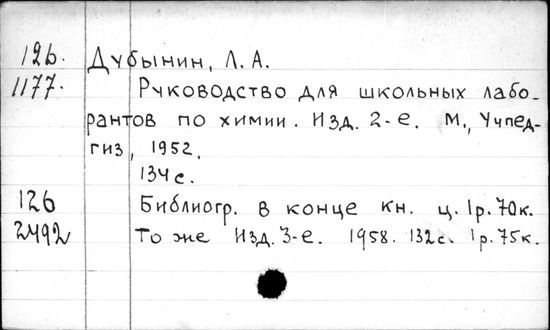 126. Дубынин, Л. А.
1177. Руководство для школьных лабо-
рантов по химии. Изд. 2-е. М., Учпед-
гиз, 1952.
134 с.
126 Библиогр. в конце кн. ц. 1р. 70к.
2492 То же Изд. 3-е. 1958. 132с. 1р. 75к.